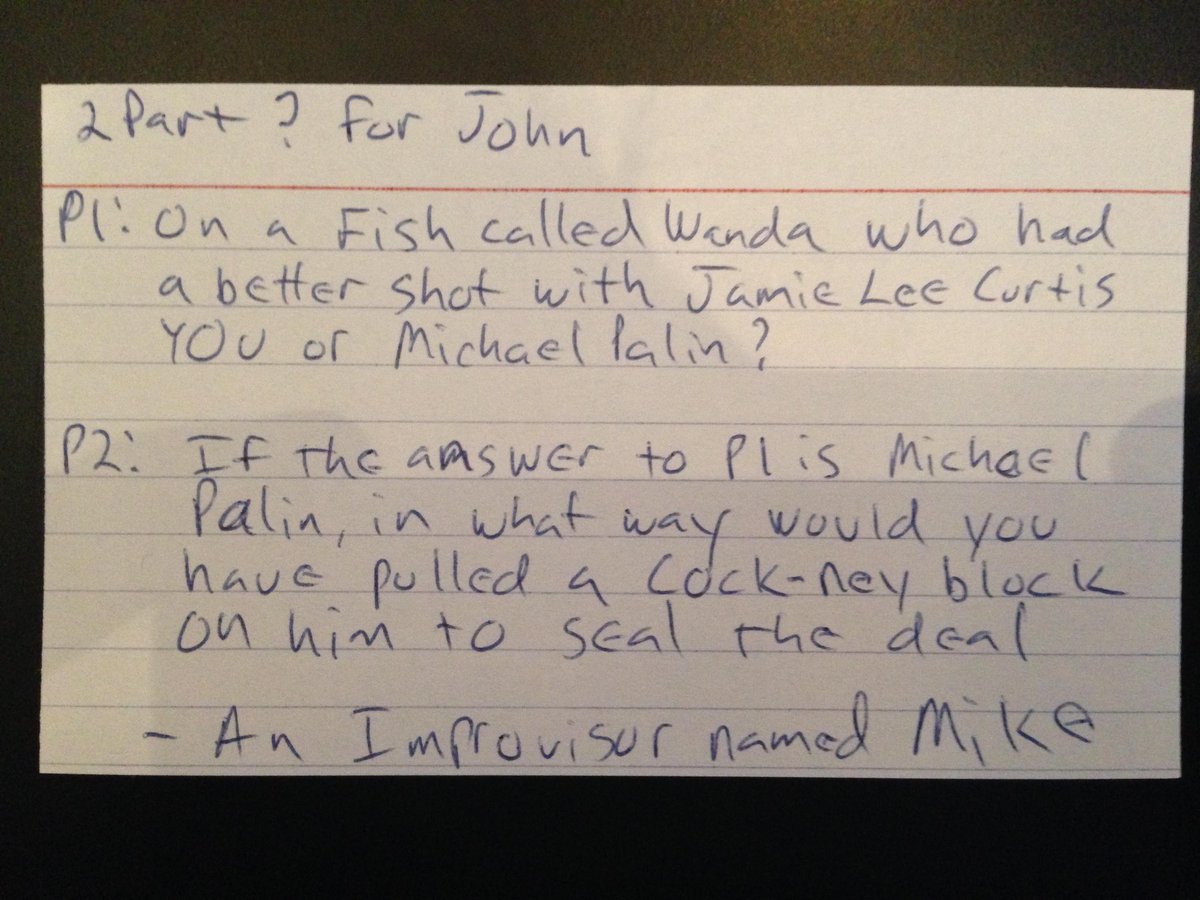 2 Part ? for John
P1: On a Fish called Wanda who had
a better shot with Jamie Lee Curtis
YOU or Michael Palin?
P2: If the answer to P1 is Michael
Palin, in what way would you
have pulled a Cock-ney block
on him to seal the deal
- An Improvisor named Mike